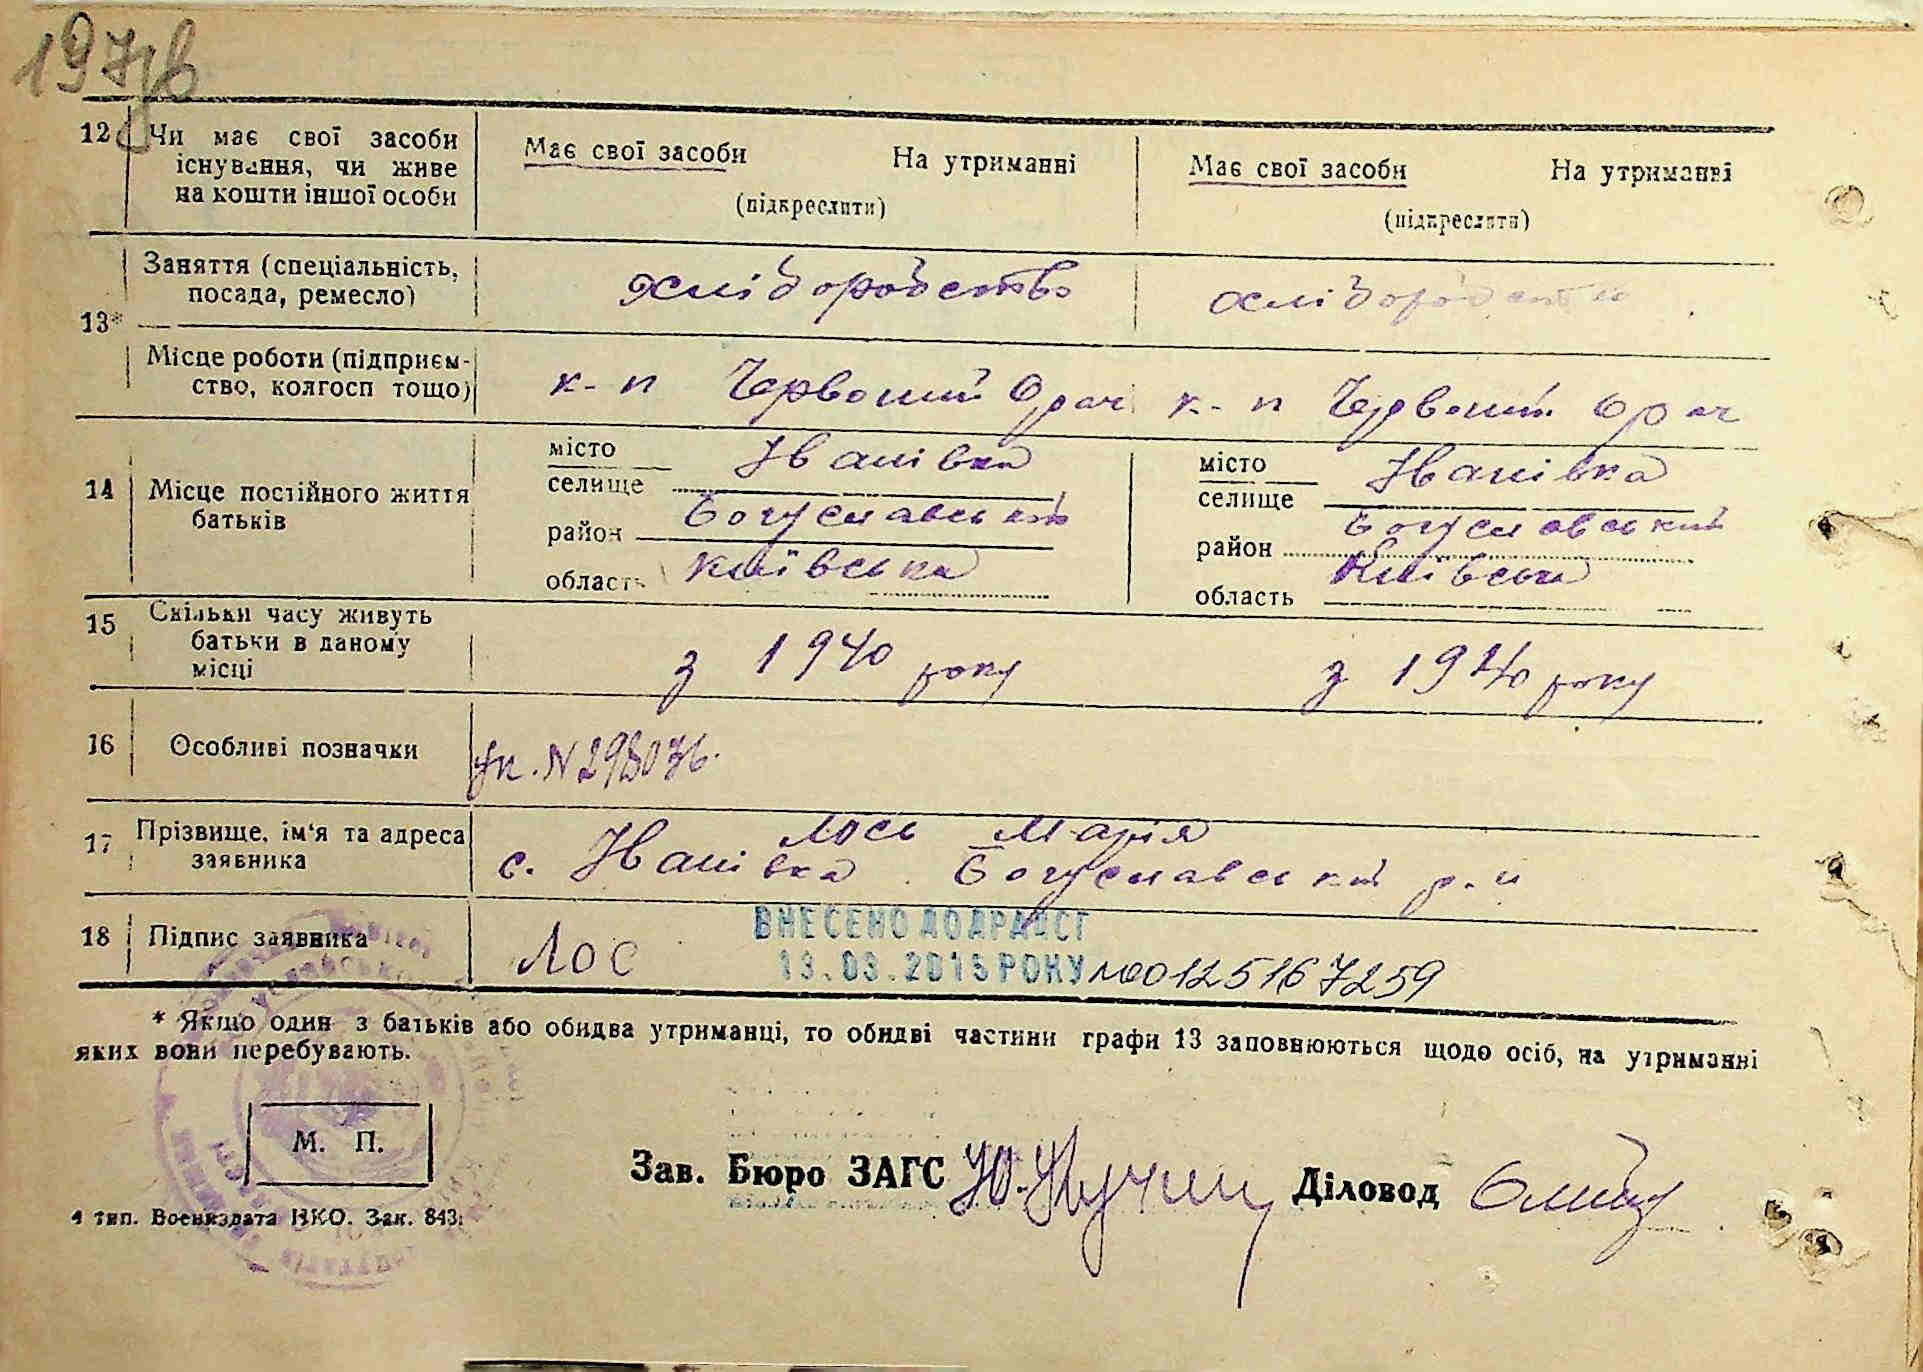 197зв
12 Чи має свої засоби існування, чи живе на кошти іншої особи
Має свої засоби На утриманні
(підкреслити)
Має свої засоби На утриманні
(підкреслити)
13*
Заняття (спеціальність, посада, ремесло)
хліборобство хліборобство
Місце роботи (підприєм-
ство, колгосп тощо)
к-п Червоний Орач к-п Червоний Орач
14 Місце постійного життя
батьків
місто
селище Іванівка
район Богуславський
область Київська
місто
селище Іванівка
район Богуславський
область Київська
15 Скільки часу живуть
батьки в даному
місці
з 1940 року з 1940 року
16 Особливі позначки
17 Прізвище, ім'я та адреса
заявника
Лось Марія
с. Іванівка Богуславський р-н
18 Підпис заявника
Лос
ВНЕСЕНО ДО ДРАЦСГ
13.03.2015 РОКУ №00125167259
* Якщо один з батьків або обидва утриманці, то обидві частини графи 13 заповнюються щодо осіб, на утриманні
яких вони перебувають.
М. П.
Зав. Бюро ЗАГС Діловод
4 тип. Воениздата НКО. Зак. 843.